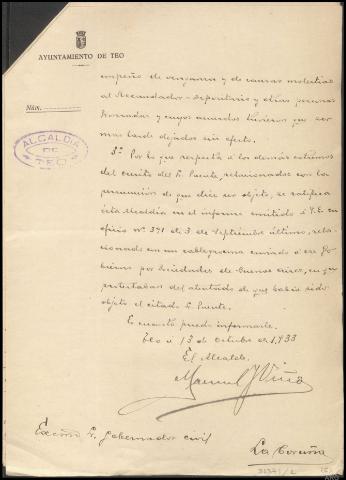 AYUNTAMIENTO DE TEO
Núm.
ALCALDIA
DE
TEO
empeño de venganza y de causar molestias
al Recaudador-Depositario y otras personas
honradas y cuyos acuerdos tuvieron que ser
mas tarde dejados sin efecto.
3º Por lo que respecta á los demás extremos
del escrito del Sr. Puente, relacionados con la
persecucion de que dice ser objeto, se ratifica
esta Alcaldia en el informe emitido á V.E. en
oficio nº 371 de 3 de Septiembre último, rela-
cionado con un cablegrama enviado á ese Go-
bierno por Sociedades de Buenos Aires, en que
protestaban del atentado de que habia sido
objeto el citado Sr. Puente.
Es cuanto puedo informarle.
Teo á 13 de Octubre de 1,933
El Alcalde,
Manuel
Excmo Sr. Gobernador civil
La Coruña